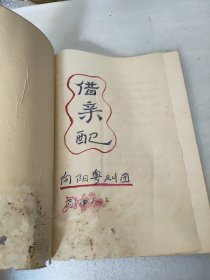 借亲配
向阳粤剧团